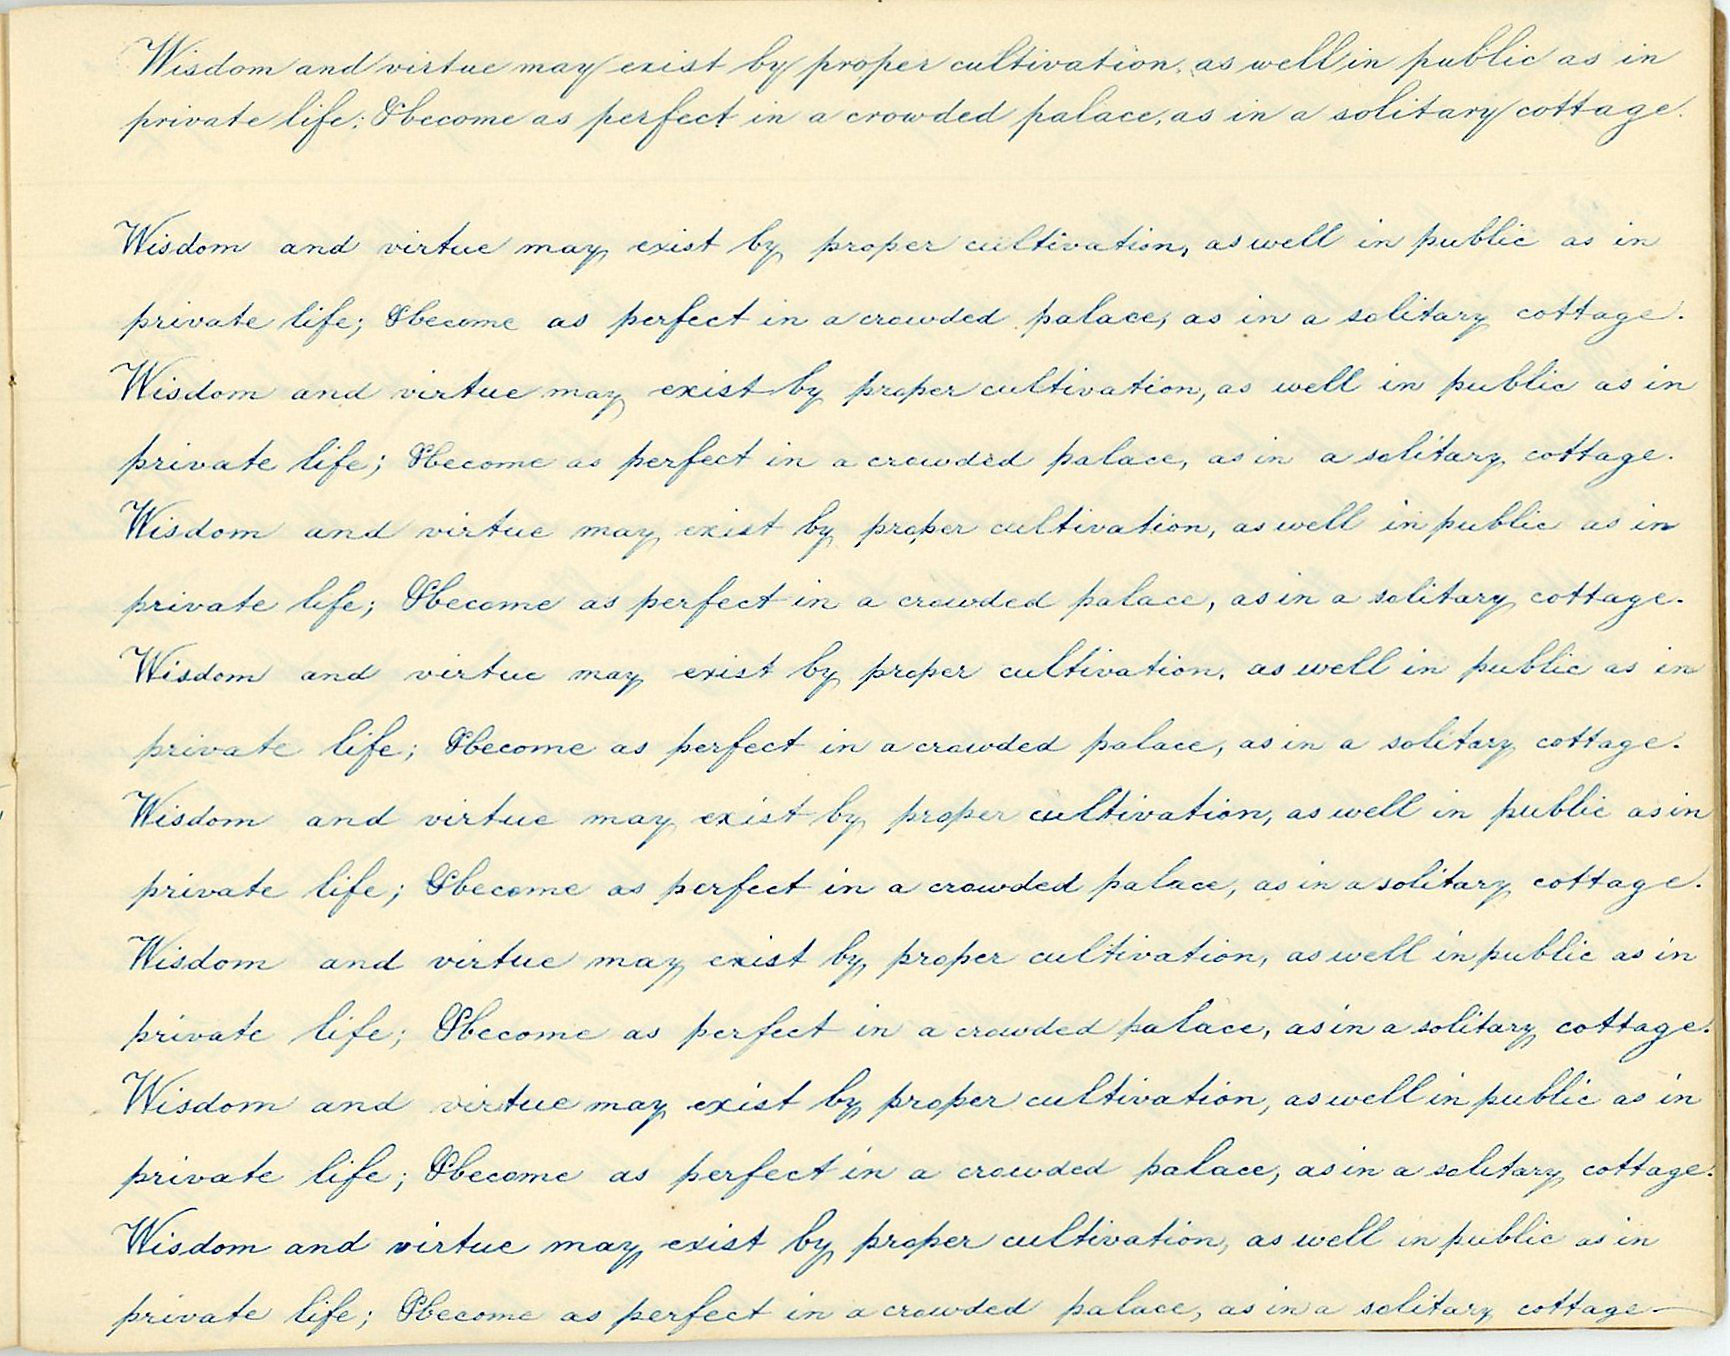 Wisdom and virtue may exist by proper cultivation, as well in public as in
private life; & become as perfect in a crowded palace, as in a solitary cottage.
Wisdom and virtue may exist by proper cultivation, as well in public as in
private life; & become as perfect in a crowded palace, as in a solitary cottage.
Wisdom and virtue may exist by proper cultivation, as well in public as in
private life; & become as perfect in a crowded palace, as in a solitary cottage.
Wisdom and virtue may exist by proper cultivation, as well in public as in
private life; & become as perfect in a crowded palace, as in a solitary cottage.
Wisdom and virtue may exist by proper cultivation, as well in public as in
private life; & become as perfect in a crowded palace, as in a solitary cottage.
Wisdom and virtue may exist by proper cultivation, as well in public as in
private life; & become as perfect in a crowded palace, as in a solitary cottage.
Wisdom and virtue may exist by proper cultivation, as well in public as in
private life; & become as perfect in a crowded palace, as in a solitary cottage.
Wisdom and virtue may exist by proper cultivation, as well in public as in
private life; & become as perfect in a crowded palace, as in a solitary cottage.
Wisdom and virtue may exist by proper cultivation, as well in public as in
private life; & become as perfect in a crowded palace, as in a solitary cottage